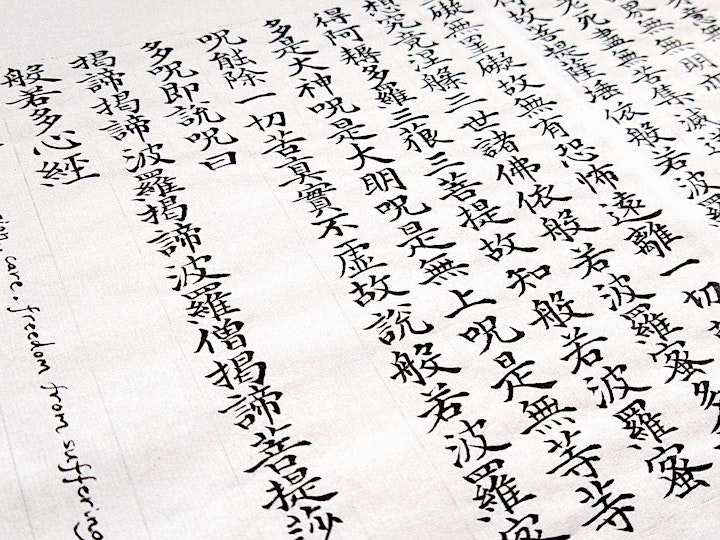 意無
界無無明亦
老死盡無苦集滅道
得故菩提薩埵依般若波羅
礙無罣礙故無有恐怖遠離一切
想究竟涅槃三世諸佛依般若波羅蜜多
得阿耨多羅三藐三菩提故知般若波羅蜜
多是大神呪是大明呪是無上呪是無等等
呪能除一切苦真實不虛故說般若波羅蜜
多呪即說呪曰
揭諦揭諦波羅揭諦波羅僧揭諦菩提莎
般若多心經
care. freedom from suffering